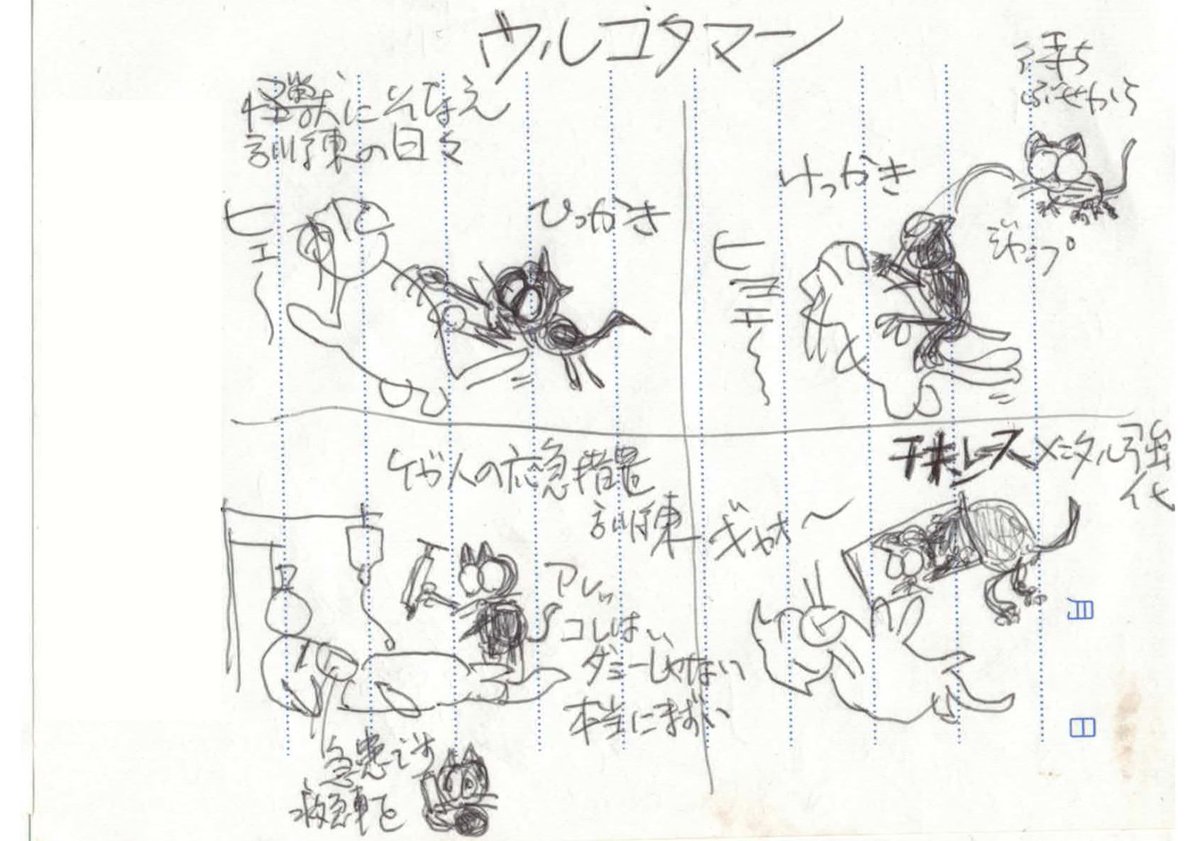 ウルゴタマーン
怪獣にそなえ
訓練の日々
ヒェ〜
ひっかき
待ち
ぶせから
けっかき
ジャンプ
ヒョエ〜
ケガ人の応急措置
訓練
アレッ
コレはい
ダミーじゃない
本当にまずい
急患です
救急車を
チキンレス
メンタル強
化
ギャオ〜
月
日